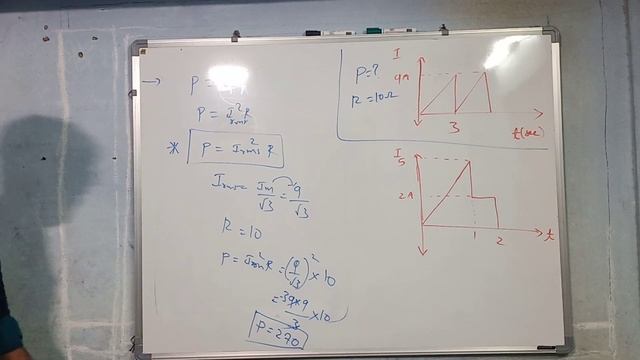 → P =
P = I²rms R
* P = Irms² R
Irms = Im/√3 = 9/√3
R = 10
P = I²rms R = (9/√3)² × 10
= 9×9/3 × 10
P = 270
P = ?
R = 10Ω
I
9A
3
t(sec)
I
5
2A
1 2 t